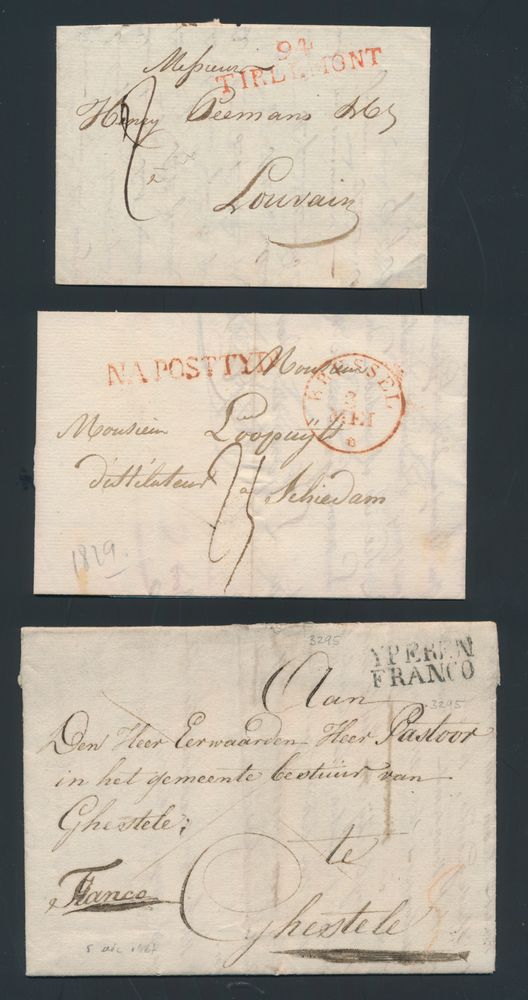 94
TIRLEMONT
Messieurs
Henry Peemans
à
Louvain
NA POSTTYD
BRUSSEL
MEI
Monsieur
Monsieur Loopuyt
distilateur
à Schiedam
1829.
3295
YPEREN
FRANCO
3295
Aan
Den Heer Eerwaarden Heer Pastoor
in het gemeente bestuur van
Ghestele;
te
Franco
Ghestele